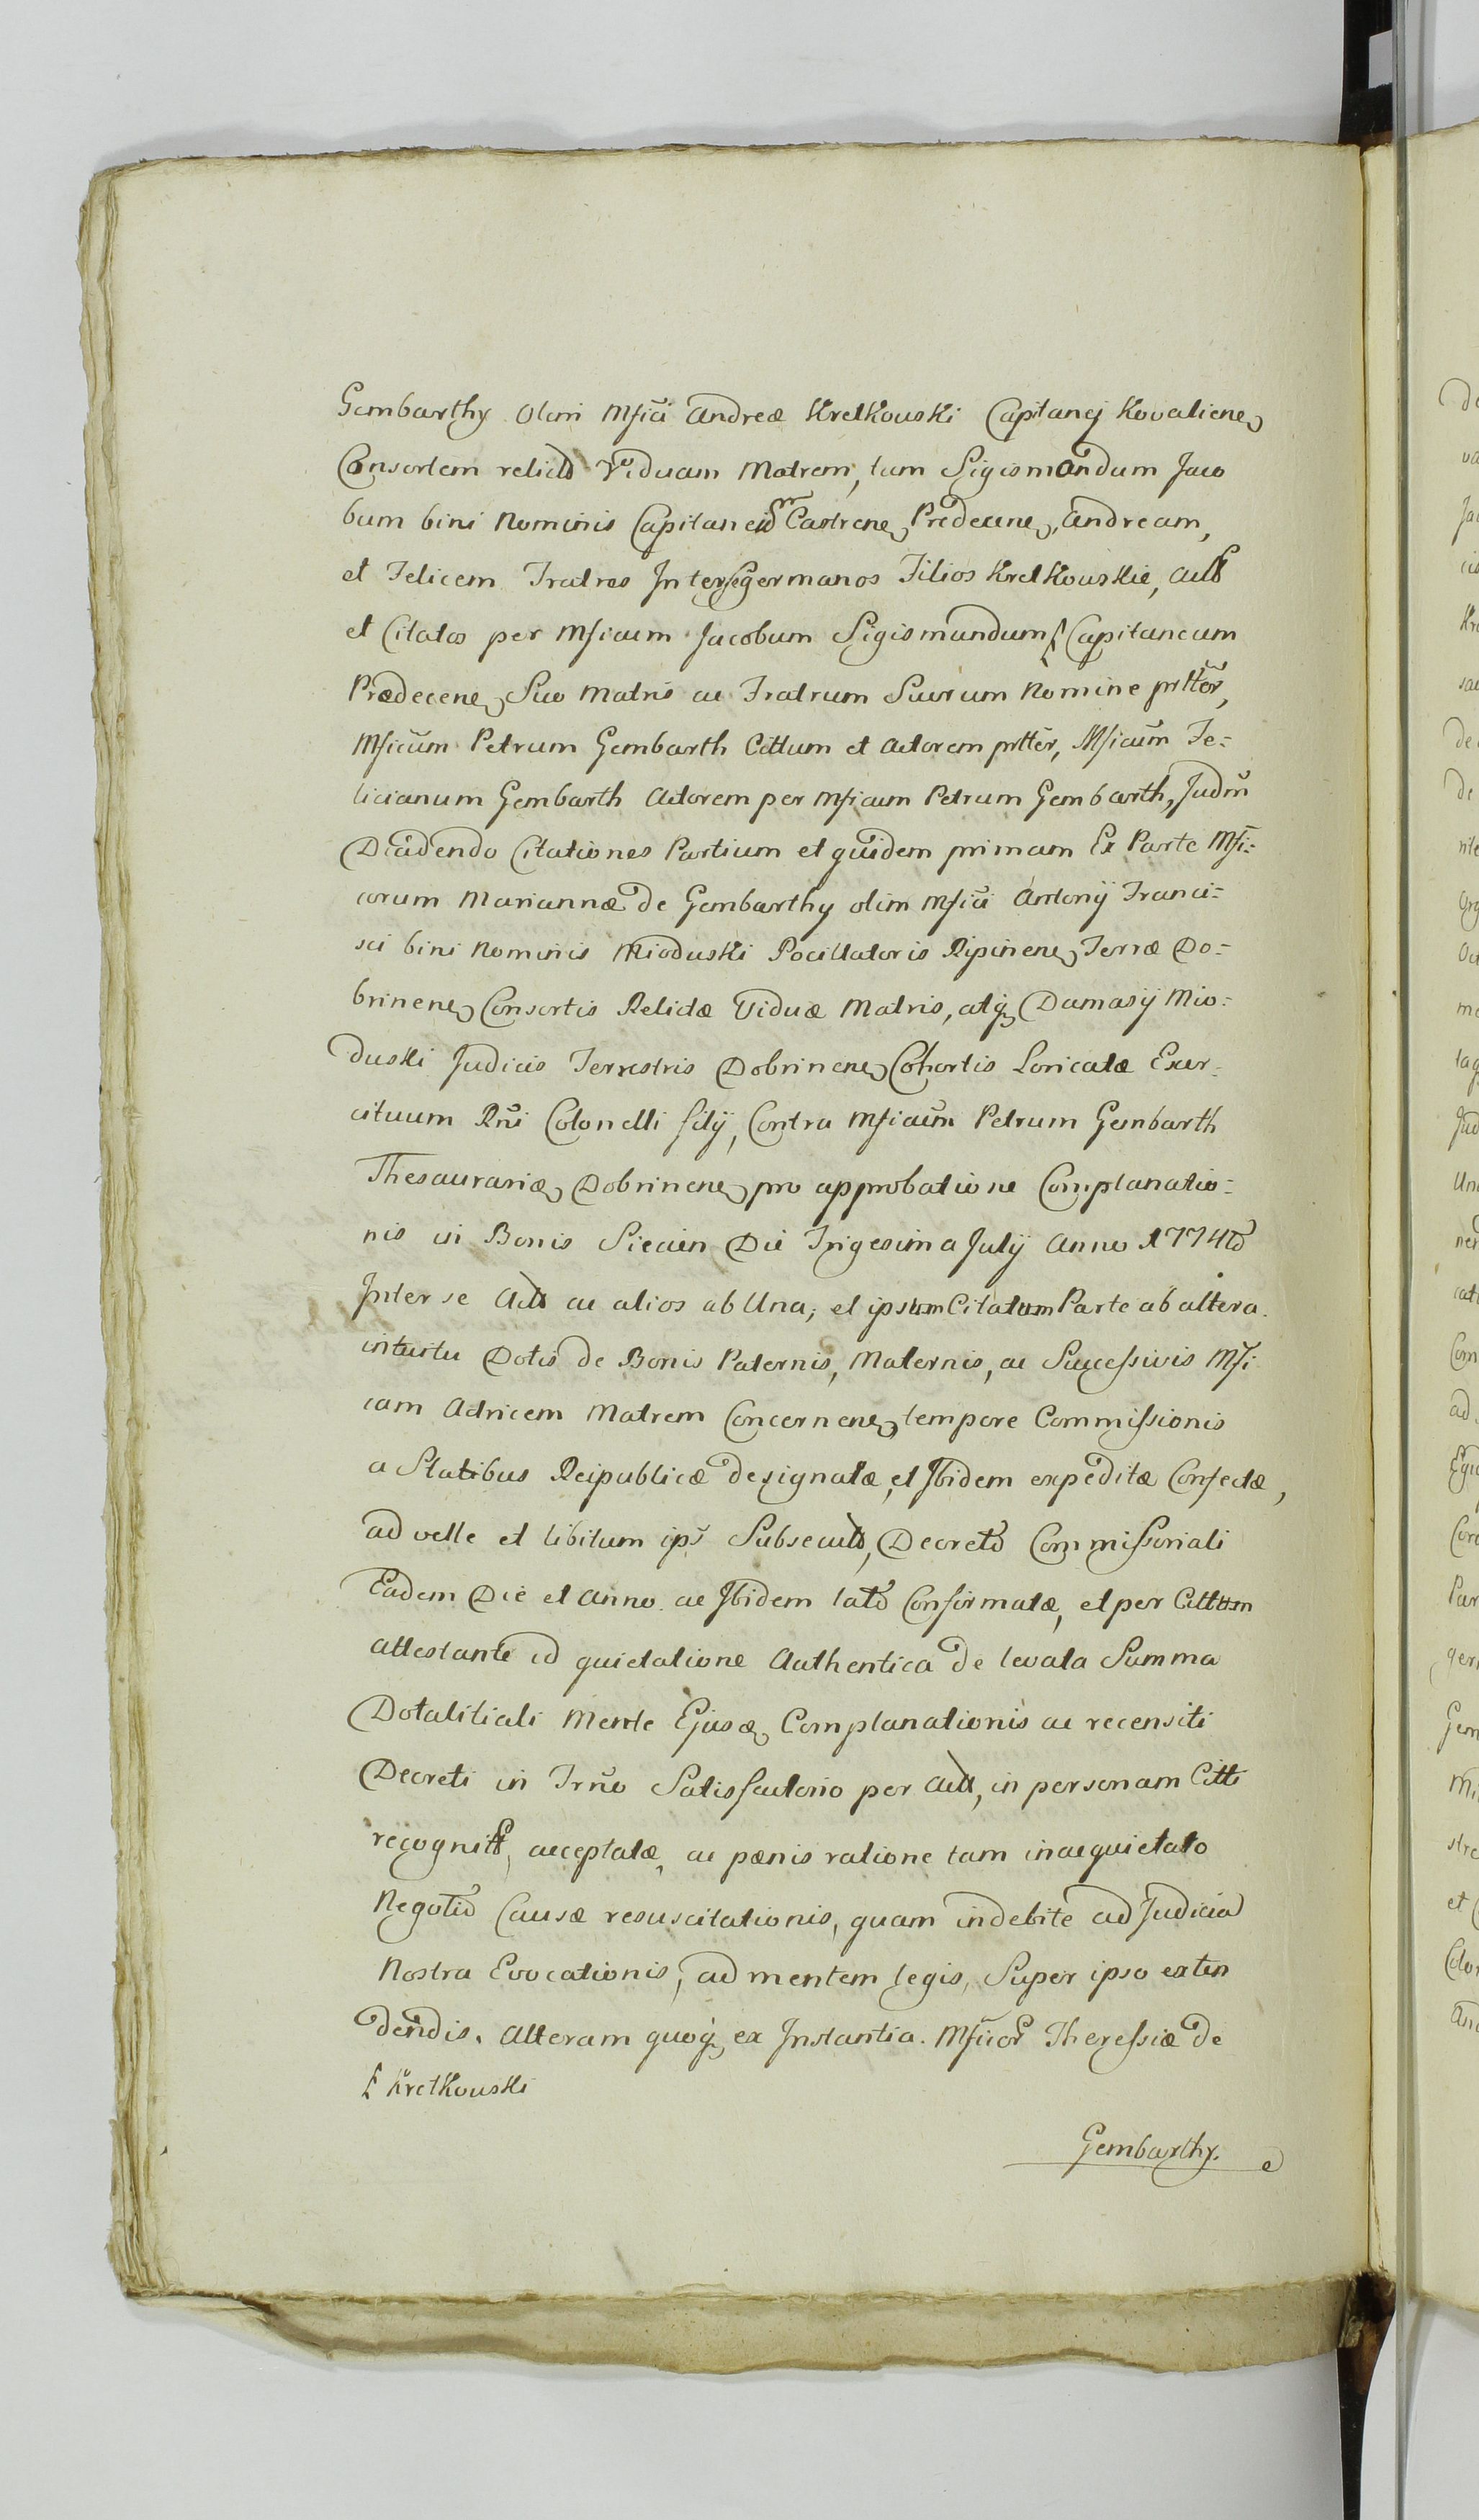 Gembarthy olim Mfici Andreæ Kretkouski Capitanej Kovaliene
Consortem relictã Viduam Matrem, tum Sigismondum Jaco
bum bini Nominis Capitaneũ Castrene Predecene, Andream,
et Felicem Fratres Intersegermanos Filios Kretkouskie,
et Citatos per Mficum Jacobum Sigismundum ⌊ Capitaneum
Prædecene Suo Matris ac Fratrum Suorum Nomine prttẽr,
Mficum Petrum Gembarth Cittum et Actorem prttẽr, Mficum Fe=
licianum Gembarth Actorem per Mficum Petrum Gembarth, Judm̃
Decidendo Citationes Partium et quidem primam Ex Parte Mfi=
corum Mariannæ de Gembarthy olim Mfici Antonij Franci=
sci bini Nominis Mioduski Pocillatoris Ripinene Terræ Do=
brinene Consortis Relictæ Viduæ Matris, atq Damasij Mio=
duski Judicis Terrestris Dobrinene Cohortis Loricatæ Exer=
cituum Rñi Colonelli filij, Contra Mficum Petrum Gembarth
Thesaurariæ Dobrinene pro approbatione Complanatio=
nis in Bonis Siecien Die Trigesima Julij Anno 1774tõ
Inter se ac alios ab Una, et ipsum Citatum Parte ab altera.
intuitu Dotis de Bonis Paternis, Maternis, ac Successivis Mfi
cam Actricem Matrem Concernene tempore Commissionis
a Statibus Reipublicæ designatæ, et Ibidem expeditæ Confectæ,
ad velle et libitum ips̃ Subsecutã, Decretõ Commissoriali
Eadem Die et Anno ac Ibidem latõ Confirmatæ, et per Cittum
attestante id quietatione Authentica de levata Summa
Dotalitiali Mente Ejusd Complanationis ac recensiti
Decreti in Frño Satisfactorio per in personam Citti
recognitæ, acceptatæ, ac pænis ratione tam inacquietato
Negotiõ Causæ resuscitationis, quam indebite ad Judicia
Nostra Evocationis, ad mentem legis, Super ipso exten
dendis. Alteram quoq ex Instantia. Mficor Theressiæ de
⌊ Kretkouski
Gembarthy.